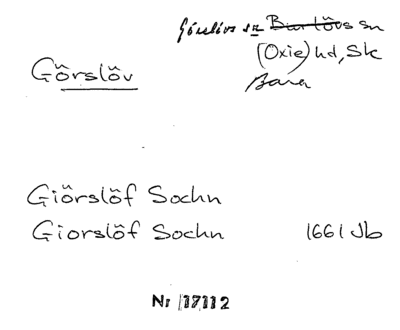 Görslöv sn ~~Burlövs~~ sn
(Oxie) hd, Sk
Bara
Görslöv
Giörslöf Sochn
Giorslöf Sochn 1661 Jb
Nr 17112